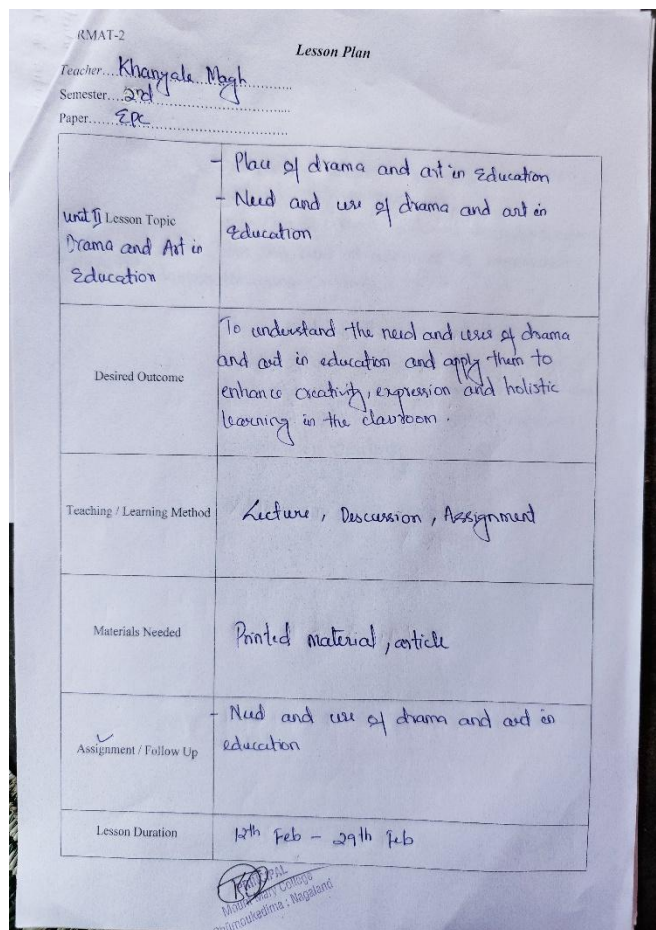 RMAT-2
Lesson Plan
Teacher....Khanyale Magh
Semester....2nd
Paper......EPC
Unit II Lesson Topic
Drama and Art in
Education
- Place of drama and art in Education
- Need and use of drama and art in
Education
Desired Outcome
To understand the need and uses of drama
and art in education and apply them to
enhance creativity, expression and holistic
learning in the classroom.
Teaching / Learning Method
Lecture, Descussion, Assignment
Materials Needed
Printed material, article
Assignment / Follow Up
- Need and use of drama and art in
education
Lesson Duration
12th Feb - 29th Feb
PRINCIPAL
Mount Mary College
Chümoukedima : Nagaland